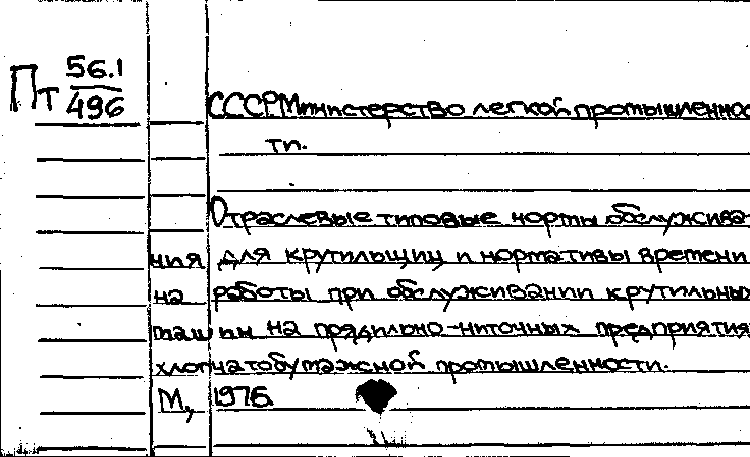 Пт 56.1/496
СССР. Министерство легкой промышленнос
ти.
Отраслевые типовые нормы обслужива
ния для крутильщиц и нормативы времени
на работы при обслуживании крутильных
машин на прядильно-ниточных предприятия
хлопчатобумажной промышленности.
М., 1976.